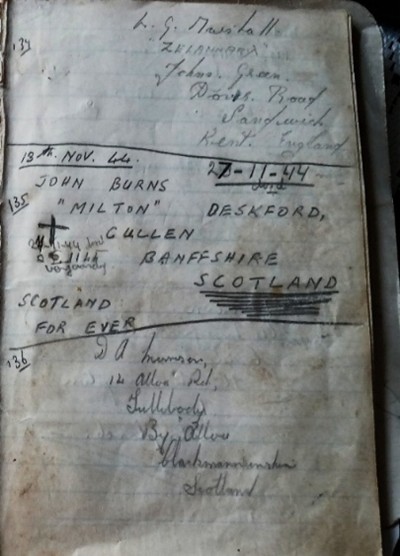 134
L. G. Marshall
Johns. Green.
Road
Sandwich
Kent. England
13th. NOV. 44.
27-11-44
135
JOHN BURNS
"MILTON" DESKFORD,
CULLEN
BANFFSHIRE
SCOTLAND
SCOTLAND
FOR EVER
136
D A
14 Alloa Rd,
Tullibody
By Alloa
Scotland